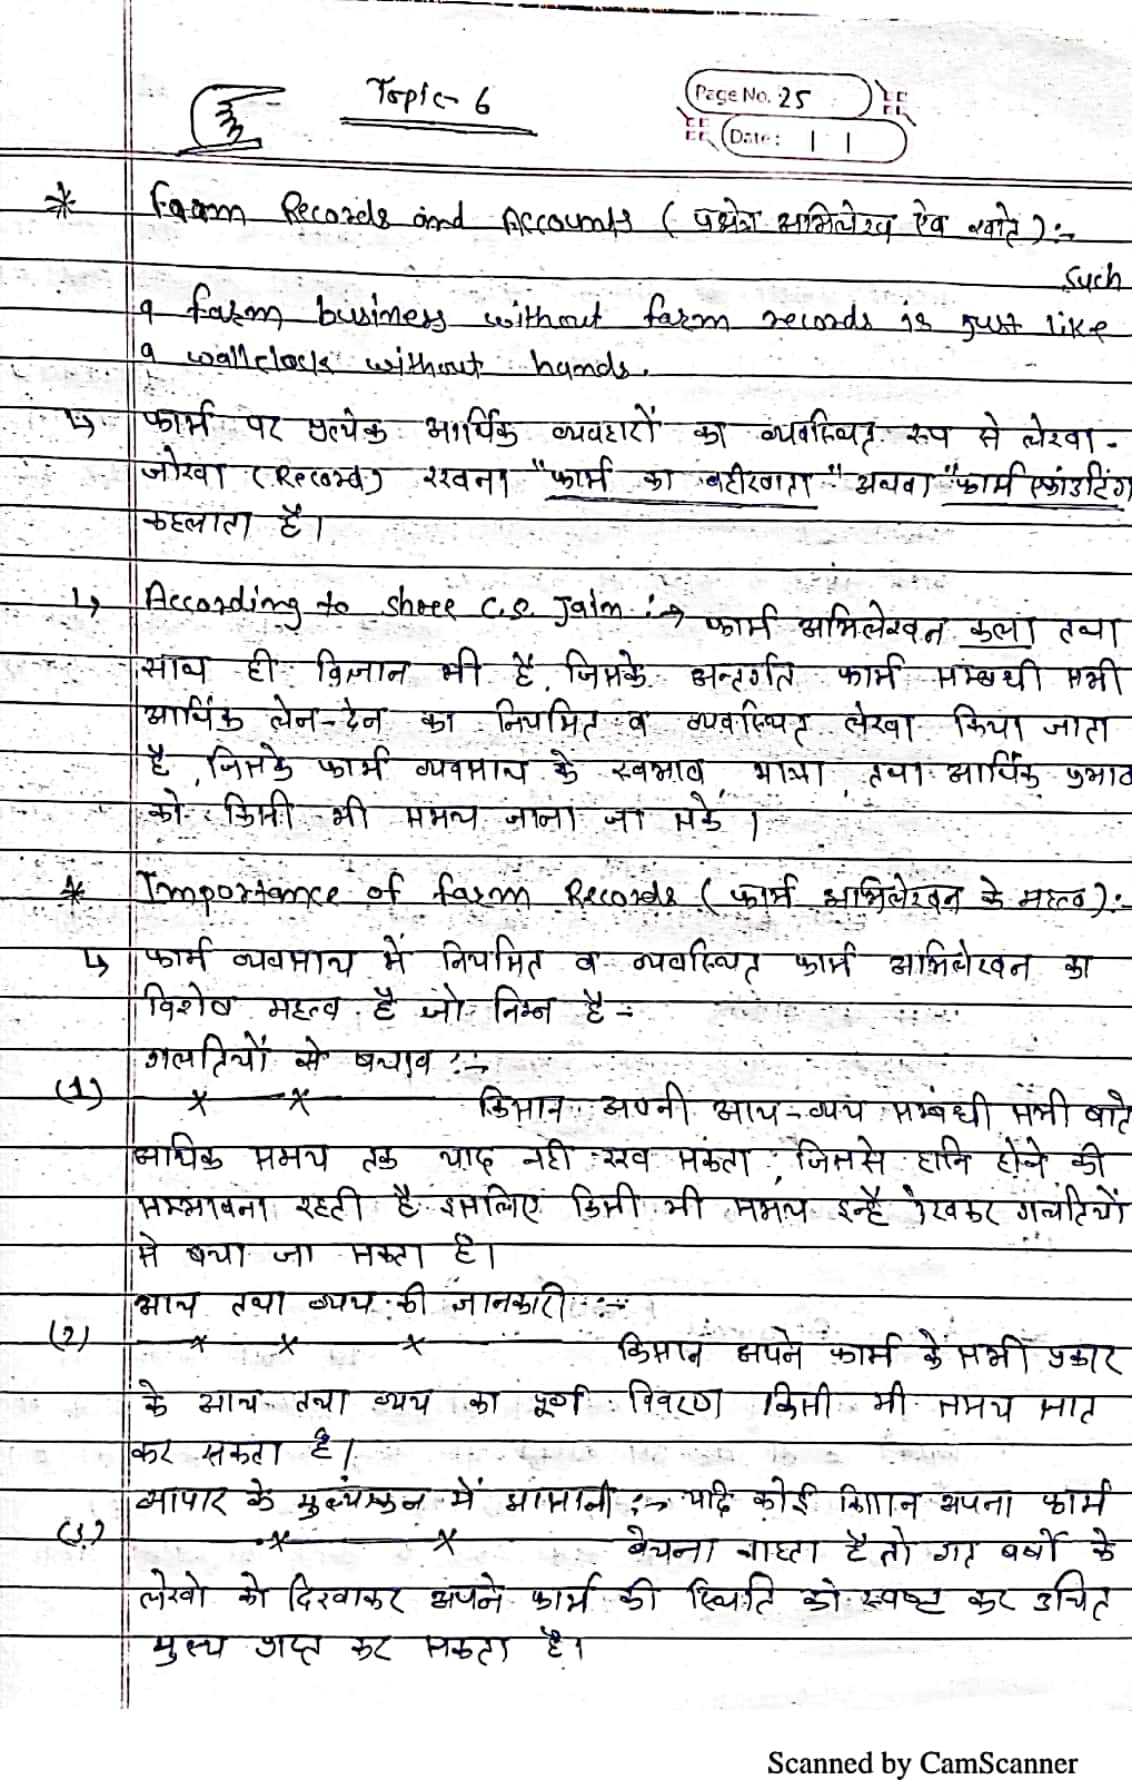 Topic- 6
Page No. 25
Date: | |
* Farm Records and Accounts ( प्रक्षेत्र अभिलेख ऐव खाते ) :-
Such
a farm business without farm records is just like
a wallclock without hands.
↳ फार्म पर प्रत्येक आर्थिक व्यवहारों का व्यवस्थित रूप से लेखा-
जोखा (Record) रखना "फार्म का बहीखाता" अथवा "फार्म एकांउटिंग
कहलाता है।
↳ According to Shree C.S. Jain :→ फार्म अभिलेखन कला तथा
साथ ही विज्ञान भी है, जिसके अन्तर्गत फार्म सम्बधी सभी
आर्थिक लेन-देन का नियमित व व्यवस्थित लेखा किया जाता
है, जिसके फार्म व्यवसाय के स्वभाव, मात्रा, तथा आर्थिक प्रभाव
को किसी भी समय जाना जा सके।
* Importance of farm Records ( फार्म अभिलेखन के महत्व ) :-
↳ फार्म व्यवसाय में नियमित व व्यवस्थित फार्म अभिलेखन का
विशेष महत्व है जो निम्न है -:
गलतियों से बचाव :-
(1) किसान अपनी आय-व्यय सम्बंधी सभी बाते
अधिक समय तक याद नही रख सकता, जिससे हानि होने की
सम्भावना रहती है इसलिए किसी भी समय इन्है देखकर गलतियों
से बचा जा सकता है।
आय तथा व्यय की जानकारी :-
(2) किसान अपने फार्म के सभी प्रकार
के आय तथा व्यय का पूर्ण विवरण किसी भी समय ज्ञात
कर सकता है।
व्यापार के मुल्यांकन में आसानी :→ यदि कोई किसान अपना फार्म
(3) बेचना चाहता है तो गत वर्षो के
लेखो को दिखाकर अपने फार्म की स्थिति को स्पष्ट कर उचित
मुल्य प्राप्त कर सकता है।
Scanned by CamScanner